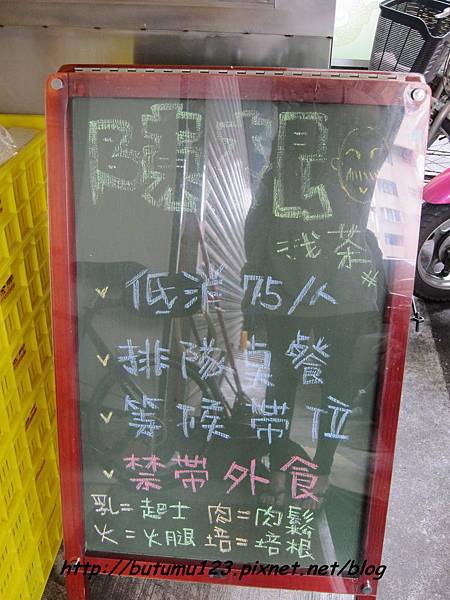 浅茶
低消75/人
排隊真餐
等候帶位
禁帶外食
乳=起士 肉=肉鬆
火=火腿 培=培根
http://butumu123.pixnet.net/blog